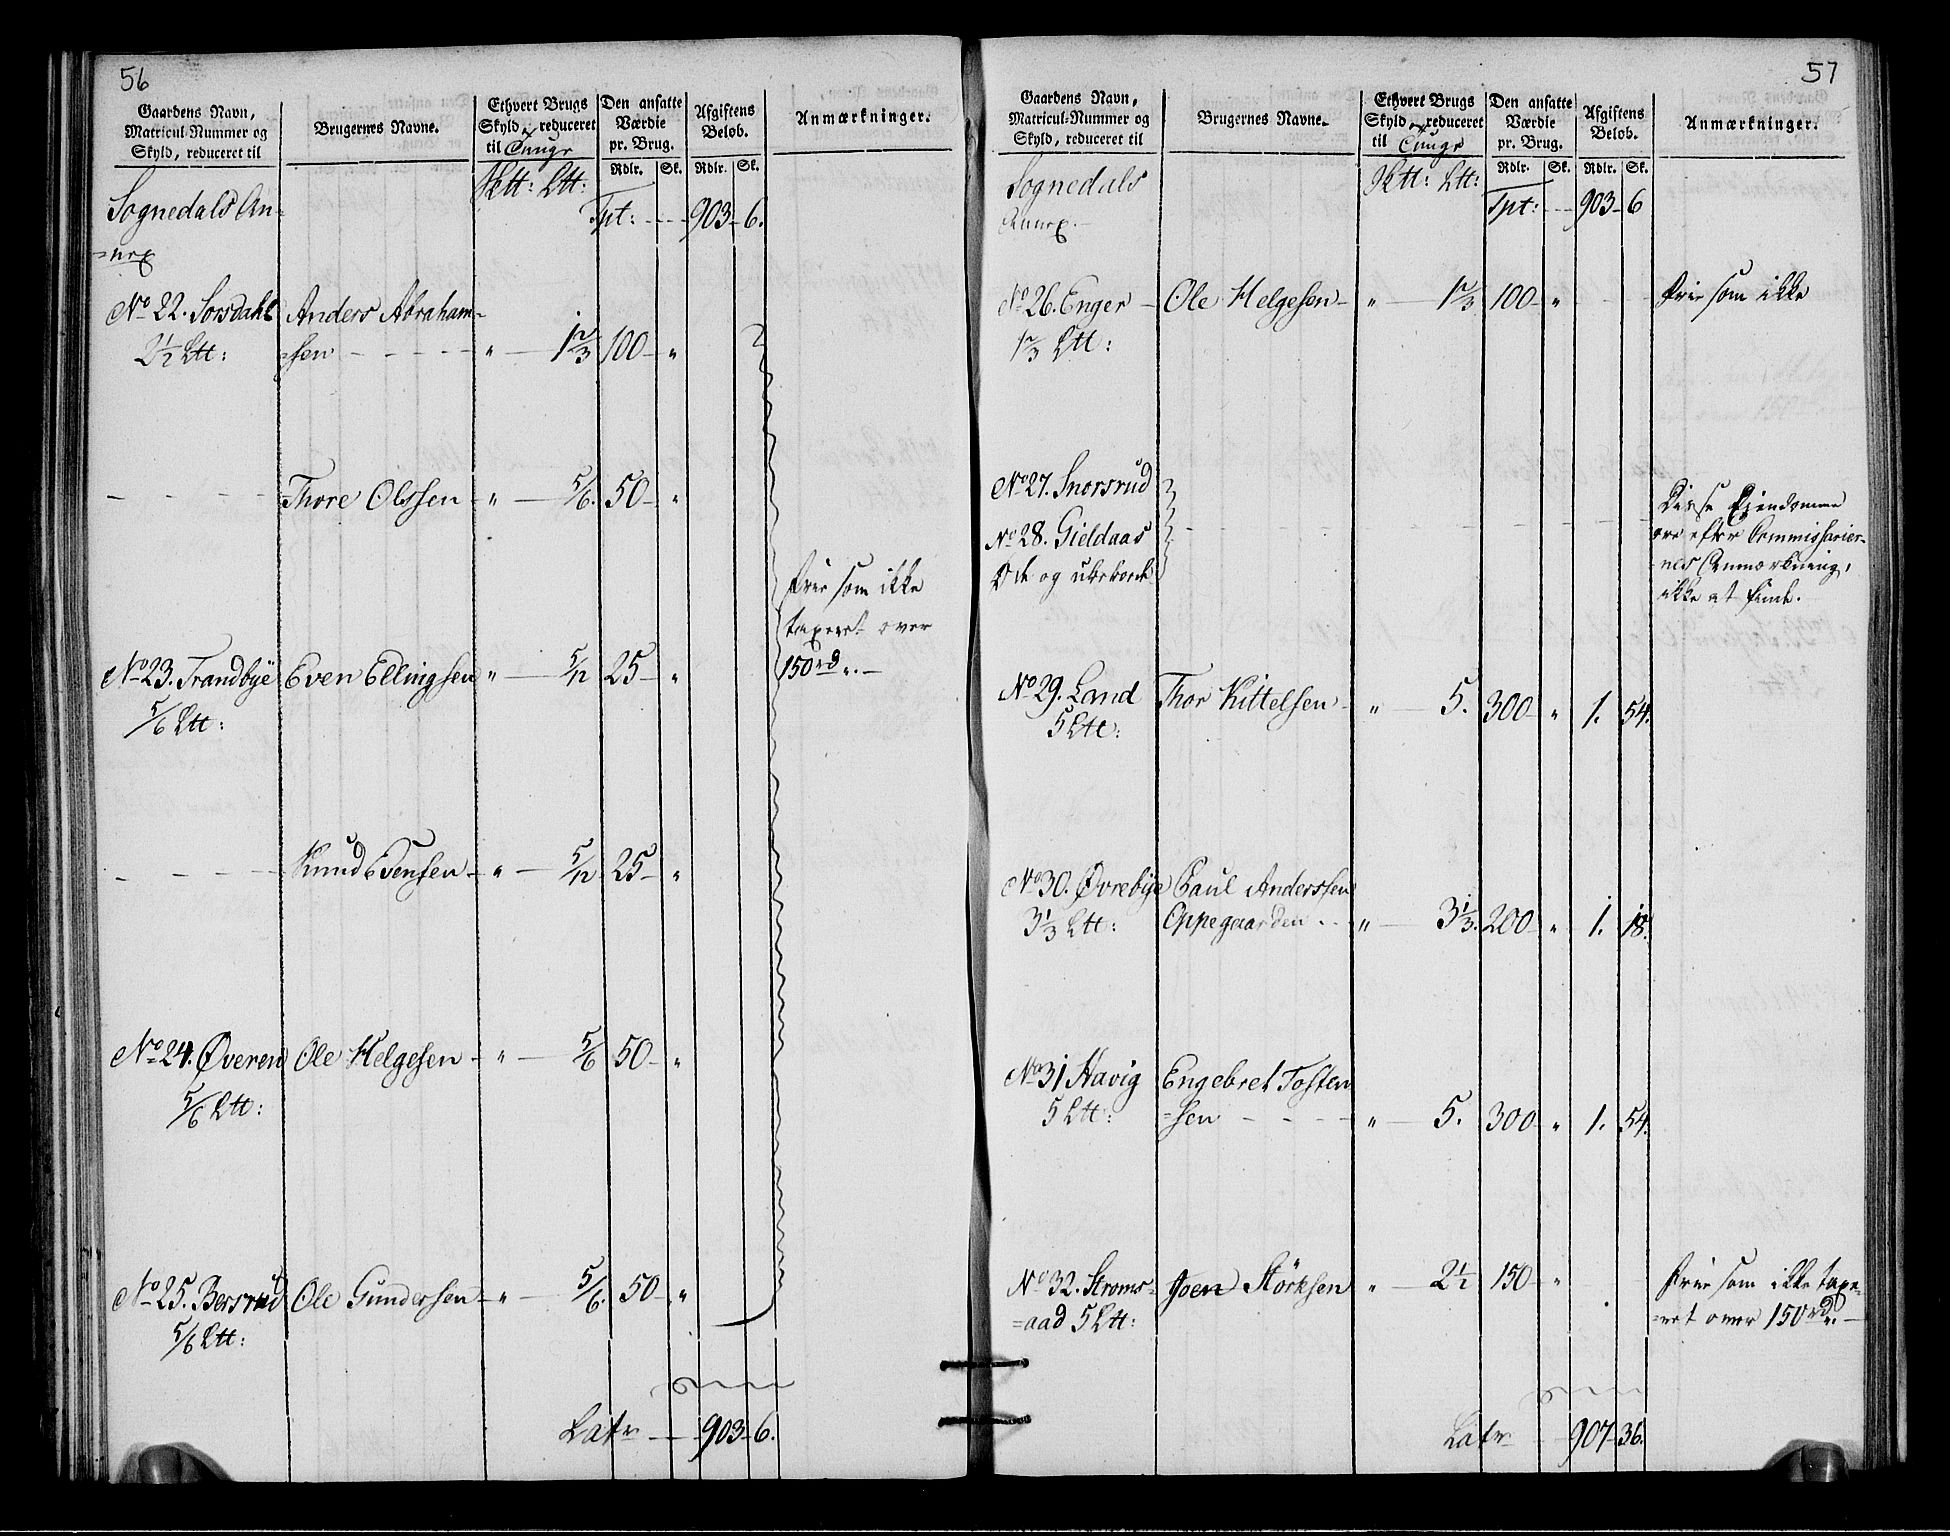 56
Gaardens Navn, Matricul-Nummer og Skyld, reduceret til
Brugernes Navne.
Ethvert Brugs Skyld, reduceret til Tunge
Den ansatte Værdie pr. Brug.
Afgiftens Beløb.
Anmærkninger.
Rdlr. Sk. Rdlr. Sk.
Sognedals An-
=nex
Tpt: - - - 903 - 6.
No 22. Sorsdahl Anders Abraham-
2½ Ltt: =sen - - - - - " - 1⅔ 100 - "
- - - - Thore Olssen - " - 5/6. 50 - "
friie som ikke
taxeret over
150 rd ". -
No 23. Trandbye Even Ellingsen " - 5/12 25 - "
5/6 Ltt:
- - - - Knud Evensen - " - 5/12 25 - "
No 24. Øveren Ole Helgesen - " - 5/6 50 - "
5/6 Ltt:
No 25. Bersrud Ole Gundersen - " - 5/6. 50 - "
5/6 Ltt:
Latr - - - 903 - 6.
57
Gaardens Navn, Matricul-Nummer og Skyld, reduceret til
Brugernes Navne.
Ethvert Brugs Skyld, reduceret til Tunge
Den ansatte Værdie pr. Brug.
Afgiftens Beløb.
Anmærkninger.
Rdlr. Sk. Rdlr. Sk.
Sognedals
Annex. -
Tpt: - - - 903 - 6
No 26. Enger - Ole Helgesen - " - 1⅔ 100 - " friie som ikke
1⅔ Ltt:
No 27. Snorsrud
No 28. Gieldaas
Øde og
Disse Eiendomme
ere efter Commissarier-
nes Anmærkning,
ikke at finde.
No 29. Land Thor Kittelsen - " - 5. 300 - " 1. 54.
5 Ltt:
No 30. Øvrebye Paul Anderssen
3⅓ Ltt: Oppegaarden - - " - 3⅓. 200 - " 1. 18.
No 31 Havig Engebret Tosten
5 Ltt: =sen - - - - " - 5. 300 - " 1. 54.
No 32. Stroms- Joen Störksen " - 2½ 150 - " friie som ikke taxe-
=aad 5 Ltt: =ret over 150 rd. -
Latr 907 - 36.